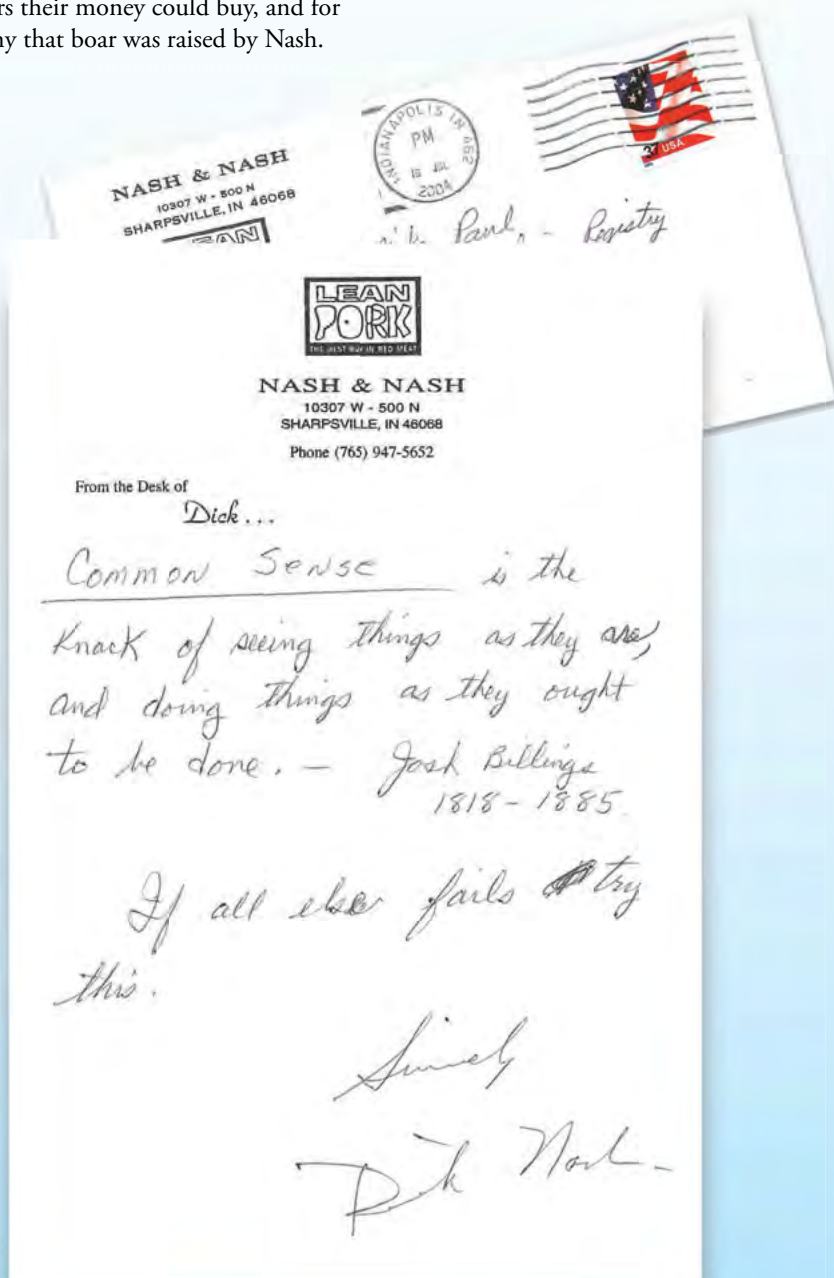 rs their money could buy, and for
ny that boar was raised by Nash.
NASH & NASH
10307 W - 500 N
SHARPSVILLE, IN 46068
LEAN
INDIANAPOLIS IN 462
PM
JUL
2004
37 USA
Paul, - Registry
LEAN
PORK
THE BEST BUY IN RED MEAT
NASH & NASH
10307 W - 500 N
SHARPSVILLE, IN 46068
Phone (765) 947-5652
From the Desk of
Dick...
Common Sense is the
Knack of seeing things as they are,
and doing things as they ought
to be done. - Josh Billings
1818 - 1885
If all else fails try
this.
Sincerely
Dick Nash